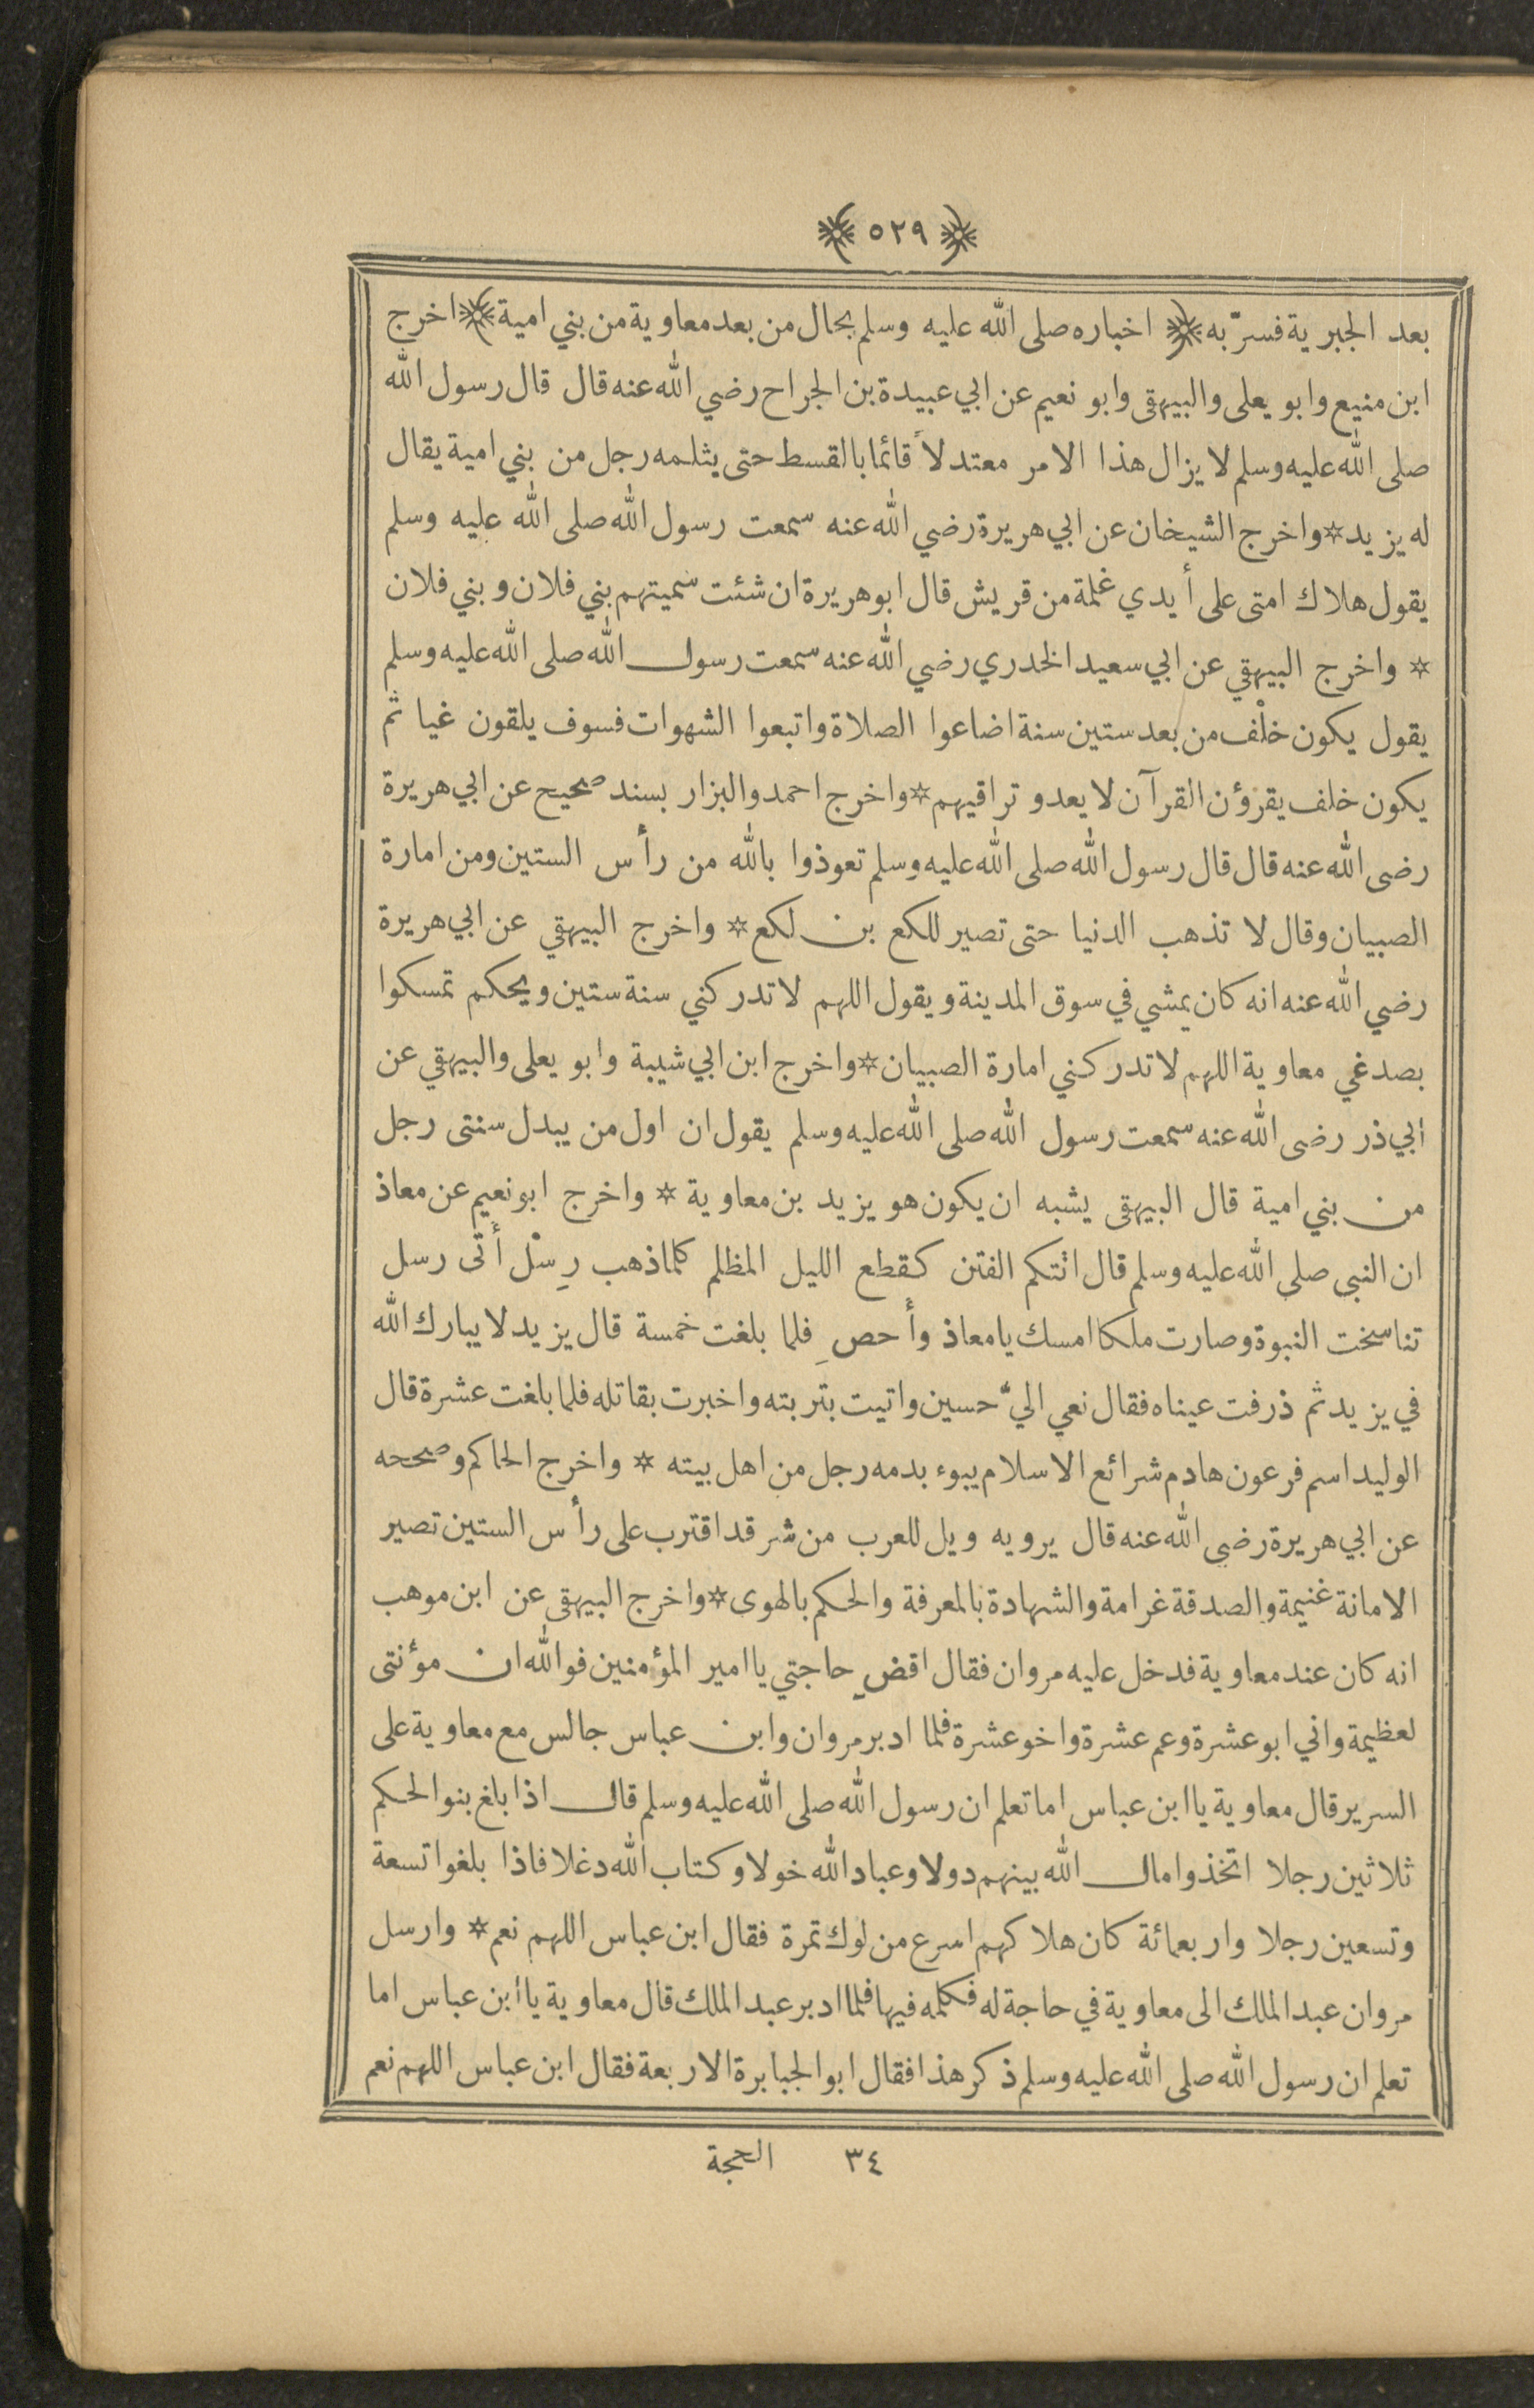 ﴿ ٥٢٩ ﴾
بعد الجبرية فسرّ به ﴿ اخباره صلى الله عليه وسلم بحال من بعد معاوية من بني امية ﴾ اخرج
ابن منيع وابو يعلى والبيهقى وابو نعيم عن ابي عبيدة بن الجراح رضي الله عنه قال قال رسول الله
صلى الله عليه وسلم لا يزال هذا الامر معتدلاً قائما بالقسط حتى يثلمه رجل من بني امية يقال
له يزيد * واخرج الشيخان عن ابي هريرة رضي الله عنه سمعت رسول الله صلى الله عليه وسلم
يقول هلاك امتى على أيدي غلمة من قريش قال ابو هريرة ان شئت سميتهم بني فلان وبني فلان
* واخرج البيهقي عن ابي سعيد الخدري رضي الله عنه سمعت رسول الله صلى الله عليه وسلم
يقول يكون خلْف من بعد ستين سنة اضاعوا الصلاة واتبعوا الشهوات فسوف يلقون غيا ثم
يكون خلف يقرؤن القرآن لا يعدو تراقيهم * واخرج احمد والبزار بسند صحيح عن ابي هريرة
رضى الله عنه قال قال رسول الله صلى الله عليه وسلم تعوذوا بالله من رأس الستين ومن امارة
الصبيان وقال لا تذهب الدنيا حتى تصير للكع بن لكع * واخرج البيهقي عن ابي هريرة
رضي الله عنه انه كان يمشي في سوق المدينة ويقول اللهم لا تدركني سنة ستين ويحكم تمسكوا
بصدغي معاوية اللهم لا تدركني امارة الصبيان * واخرج ابن ابي شيبة وابو يعلى والبيهقي عن
ابي ذر رضى الله عنه سمعت رسول الله صلى الله عليه وسلم يقول ان اول من يبدل سنتى رجل
من بني امية قال البيهقى يشبه ان يكون هو يزيد بن معاوية * واخرج ابو نعيم عن معاذ
ان النبى صلى الله عليه وسلم قال اتتكم الفتن كقطع الليل المظلم كلما ذهب رِسْل أتى رسل
تناسخت النبوة وصارت ملكا امسك يا معاذ وأحصِ فلما بلغت خمسة قال يزيد لا يبارك الله
في يزيد ثم ذرفت عيناه فقال نعي اليّ حسين واتيت بتربته واخبرت بقاتله فلما بلغت عشرة قال
الوليد اسم فرعون هادم شرائع الاسلام يبوء بدمه رجل من اهل بيته * واخرج الحاكم وصححه
عن ابي هريرة رضى الله عنه قال يرويه ويل للعرب من شر قد اقترب على رأس الستين تصير
الامانة غنيمة والصدقة غرامة والشهادة بالمعرفة والحكم بالهوى * واخرج البيهقى عن ابن موهب
انه كان عند معاوية فدخل عليه مروان فقال اقضِ حاجتي يا امير المؤمنين فوالله ان مؤنتى
لعظيمة واني ابو عشرة وعم عشرة واخو عشرة فلما ادبر مروان وابن عباس جالس مع معاوية على
السرير قال معاوية يا ابن عباس اما تعلم ان رسول الله صلى الله عليه وسلم قال اذا بلغ بنو الحكم
ثلاثين رجلا اتخذوا مال الله بينهم دولا وعباد الله خولا وكتاب الله دغلا فاذا بلغوا تسعة
وتسعين رجلا واربعمائة كان هلاكهم اسرع من لوك تمرة فقال ابن عباس اللهم نعم * وارسل
مروان عبد الملك الى معاوية في حاجة له فكلمه فيها فلما ادبر عبد الملك قال معاوية يا ابن عباس اما
تعلم ان رسول الله صلى الله عليه وسلم ذكر هذا فقال ابو الجبابرة الاربعة فقال ابن عباس اللهم نعم
٣٤ الحجة